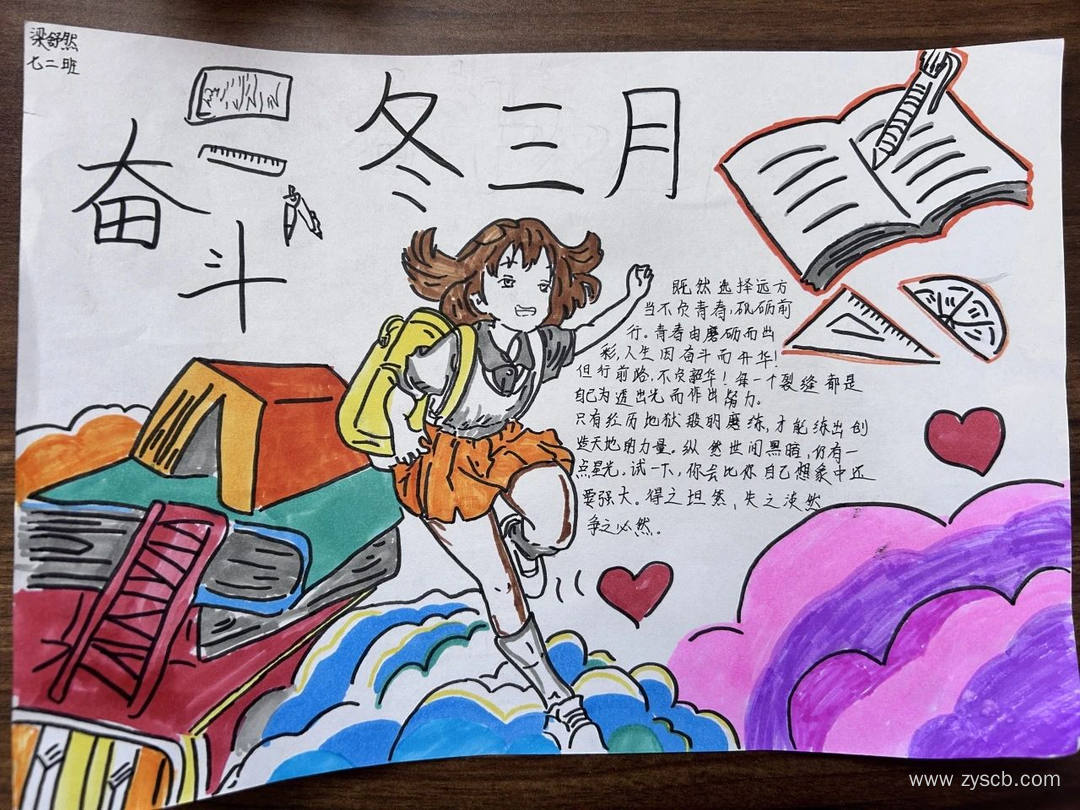 梁舒然
七二班
奋斗
冬三月
既然选择远方
当不负青春,砥砺前
行。青春由磨砺而出
彩,人生因奋斗而升华!
但行前路,不负韶华!每一个裂缝都是
自己为透出光而作出努力。
只有经历地狱般的磨练,才能练出创
造天地的力量。纵然世间黑暗,仍有一
点星光。试一下,你会比你自己想象中还
要强大。得之坦然,失之淡然
争之必然。
www.zyscb.com